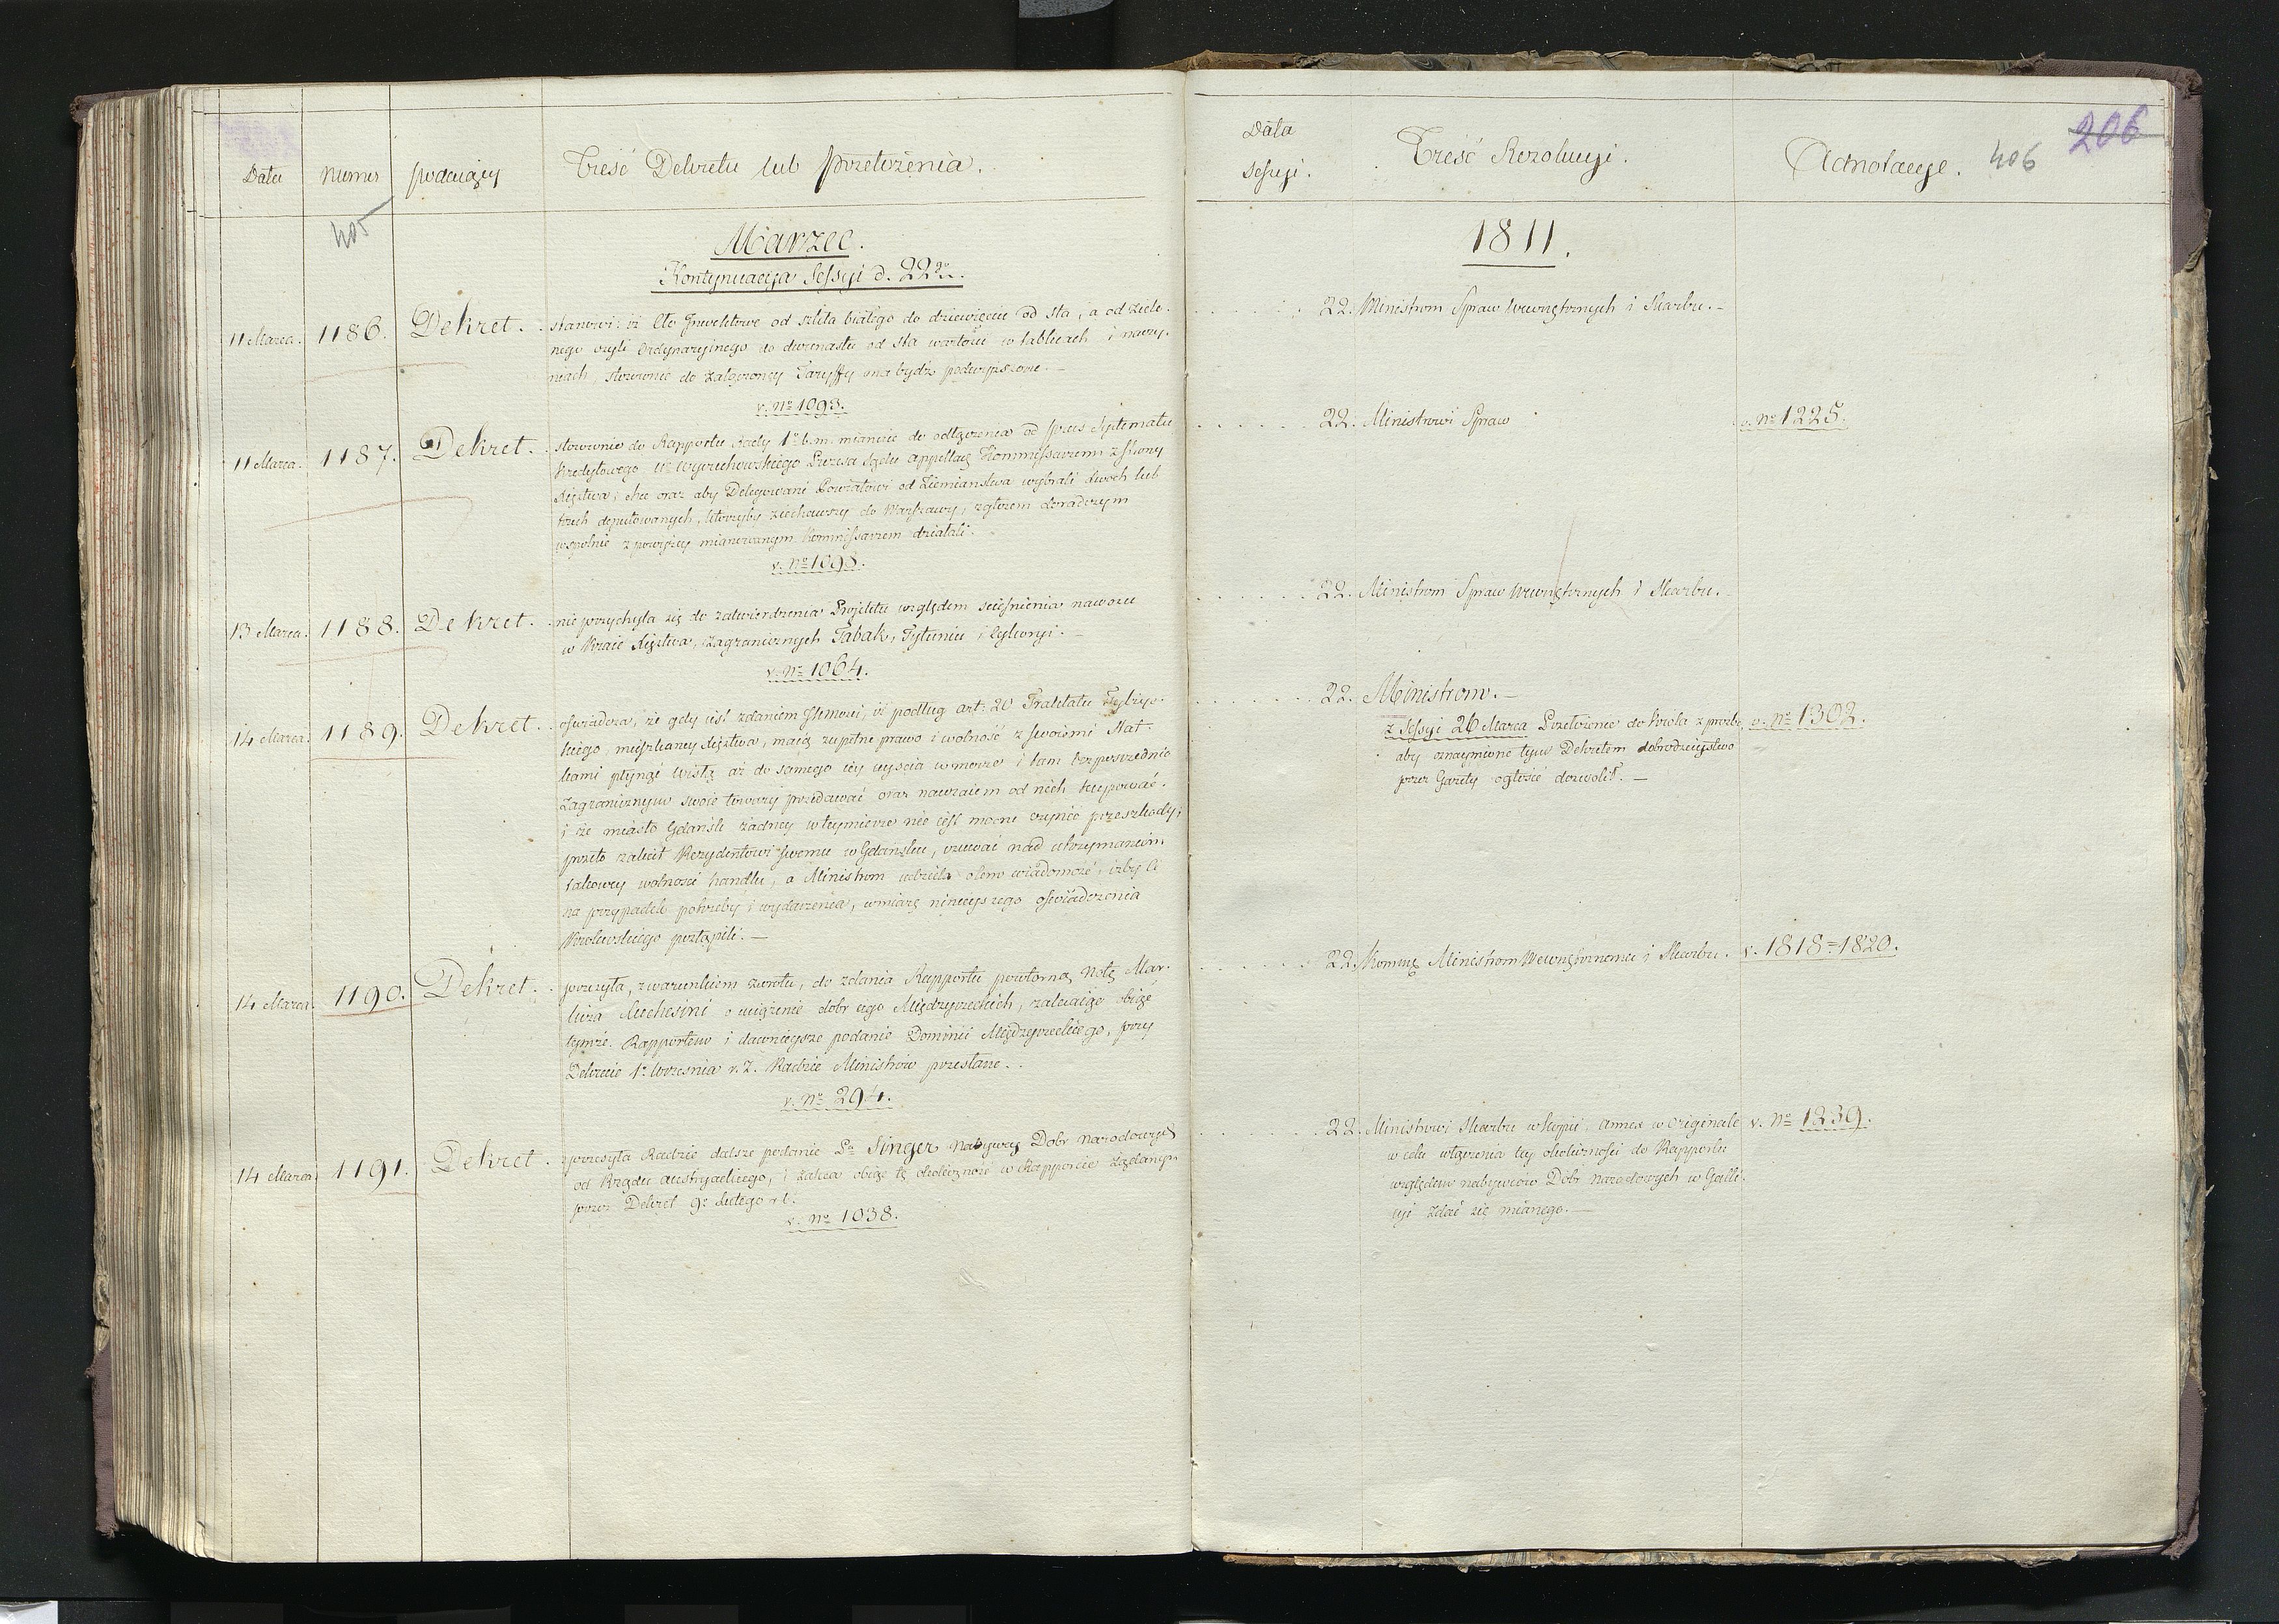 Data
Numer
podaiący
Treść Dekretu lub przełożenia.
405
Marzec.
Kontynuacyja Sessyi d. 22go
11 Marca. 1186. Dekret. stanowi: iż Cło od szkła białego do dziewięciu od sta, a od zielo-
nego czyli Ordynaryinego do dwunastu od sta wartości w tablicach i naczy-
niach, stosownie do załączoney Taryffy ma bydź podwyższone.—
v. No 1093.
11 Marca. 1187. Dekret. stosownie do Rapportu Rady 1o b. m. mianuie do odłączenia od Systematu
Kredytowego Wyczechowskiego Prezesa Sądu appellac. Kommissarzem z strony
Xięztwa; chce oraz aby Delegowani Powiatowi od Ziemianstwa wybrali dwoch lub
trzech deputowanych, ktorzyby ziechawszy do Warszawy, z głosem doradczym
wspolnie z powyżey mianowanym Kommissarzem działali.
v. No 1098.
13 Marca. 1188. Dekret. nie przychyla się do zatwierdzenia Projektu względem scieśnienia nawozu
w Kraie Xięztwa, zagranicznych Tabak, Tytuniu i Cykoryi.—
v. No 1064.
14 Marca. 1189. Dekret. oswiadcza, że gdy iest zdaniem JKMosci, iż podług art: 20 Traktatu Tylżyc-
kiego, mieszkancy Xięztwa, maią zupełne prawo i wolność z swoimi Stat-
kami płynąć Wisłą aż do samego iey uyscia w morze i tam bezposrzednio
Zagranicznym swoie towary przedawać oraz nawzaiem od nich kupować.
i że miasto Gdańsk żadney w teymierze nie iest mocne czynić przeszkody;
przeto zalecił Rezydentowi swemu w Gdańsku, czuwać nad utrzymaniem
takowey wolności handlu, a Ministrom udziela o tem wiadomość, iżby Ci
na przypadek potrzeby i wydarzenia, w miarę ninieyszego oswiadczenia
Krolewskiego postąpili.—
14 Marca. 1190. Dekret. przesyła, z warunkiem zwrotu, do zdania Rapportu powtorną Notę Mar-
kiza Luchesini o uciążenie dobr iego Międzyrzeckich, zalecaiąc obiąć
tymże Rapportem i dawnieysze podanie Dominii Międzyrzeckiego, przy
Dekrecie 1o Wrzesnia r. z. Radzie Ministrow przesłane.
v. No 294.
14 Marca 1191. Dekret. przesyła Radzie dalsze podanie Pa Singer Nabywcy Dobr Narodowych
od Rządu austryackiego, i zaleca obiąć tę okoliczność w Rapporcie żądanym
przez Dekret 9o Lutego r. b.
v. No 1038.
Data
Sessyi.
Treść Rezolucyi.
Adnotacye.
406
206
1811.
22. Ministrom Spraw Wewnętrznych i Skarbu.—
22. Ministrowi Spraw
v. No 1225.
22. Ministrom Spraw Wewnętrznych i Skarbu.
22. Ministrom.—
z Sessyi 26 Marca Przełożenie do Krola z prozbą v. No 1302.
aby oznaymione tym Dekretem dobrodzieystwo
przez Gazety ogłosić dozwolił.—
22. Kommę Ministrom Wewnętrznemu i Skarbu. v. 1818=1820.
22. Ministrowi Skarbu w kopii, annex w originale v. No 1239.
w celu włączenia tey okoliczności do Rapportu
względem nabywcow Dobr Narodowych w Galli-
cyi zdać się mianego.—